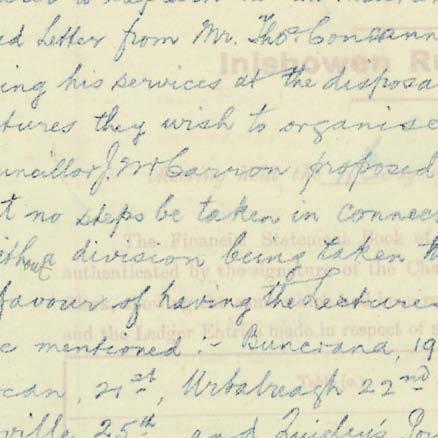 ed Letter from Mr. Thos. Concann
ing his services at the disposa
tures they wish to organise
uncillor J. McCarron proposed
t no steps be taken in connec
ithout a division being taken
favour of having the lecture
mentioned :- Buncrana, 19
21st, Urbalreagh 22nd
ville 25th and Quigley's
Inishowen Ru
The Financial Statement Book of
authenticated by the signature of the Cha
and the Ledger Entries made in respect of s